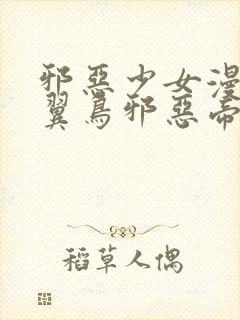 邪惡少女漫
翼鳥邪惡帝
稻草人偶